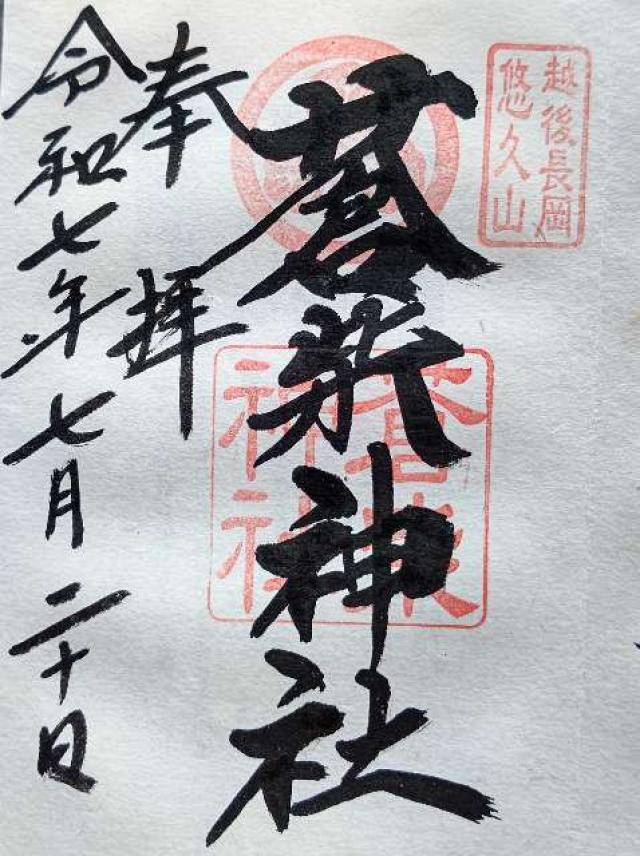 越後長岡
悠久山
蒼柴神社
蒼柴神社
奉拝
令和七年七月二十日